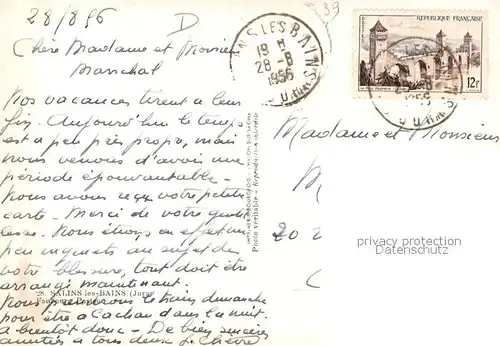 28/8/56
D
39
Chère Madame et Monsieur
Marchal
Nos vacances tirent à leur
fin. Aujourd'hui le temps
est à peu près propre, mais
nous venons d'avoir une
période épouvantable.
Nous avons reçu votre petite
carte. Merci de votre gentil
lesse. Nous étions en effet un
peu inquiets au sujet de
votre blessure, tout doit être
arrangé maintenant.
28. SALINS-les-BAINS (Jura)
Nous prendrons le train dimanche
pour être à Cachan dans la nuit.
A bientôt donc - De bien sincères
amitiés à tous deux
SALINS LES BAINS
19 H
28-8
1956
JURA
REPUBLIQUE FRANÇAISE
12F
Madame et Monsieur
M
20
Photo véritable - Reproduction interdite
privacy protection
Datenschutz